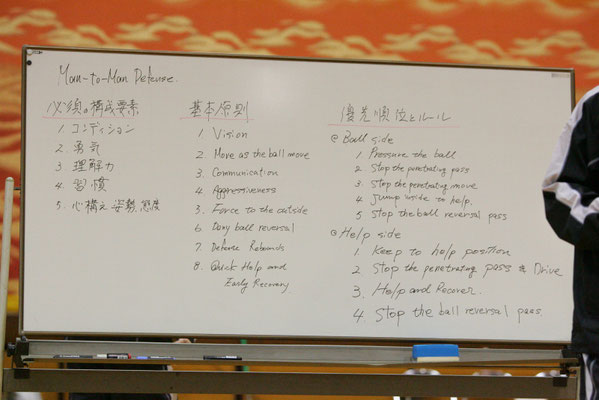 Man-to-Man Defense.
必須の構成要素
1. コンディション
2. 勇気
3. 理解力
4. 習慣
5. 心構え 姿勢、態度
基本原則
1. Vision
2 Move as the ball move
3. Communication
4. Aggressiveness
5. Force to the outside
6 Deny ball reversal
7. Defense Rebounds
8. Quick Help and
Early Recovery
優先順位とルール
◎ Ball side
1. Pressure the ball
2 Stop the penetrating pass
3. Stop the penetrating move
4 Jump inside to help.
5 Stop the ball reversal pass
◎ Help side
1. Keep to help position
2 Stop the penetrating pass & Drive
3. Help and Recover.
4. Stop the ball reversal pass